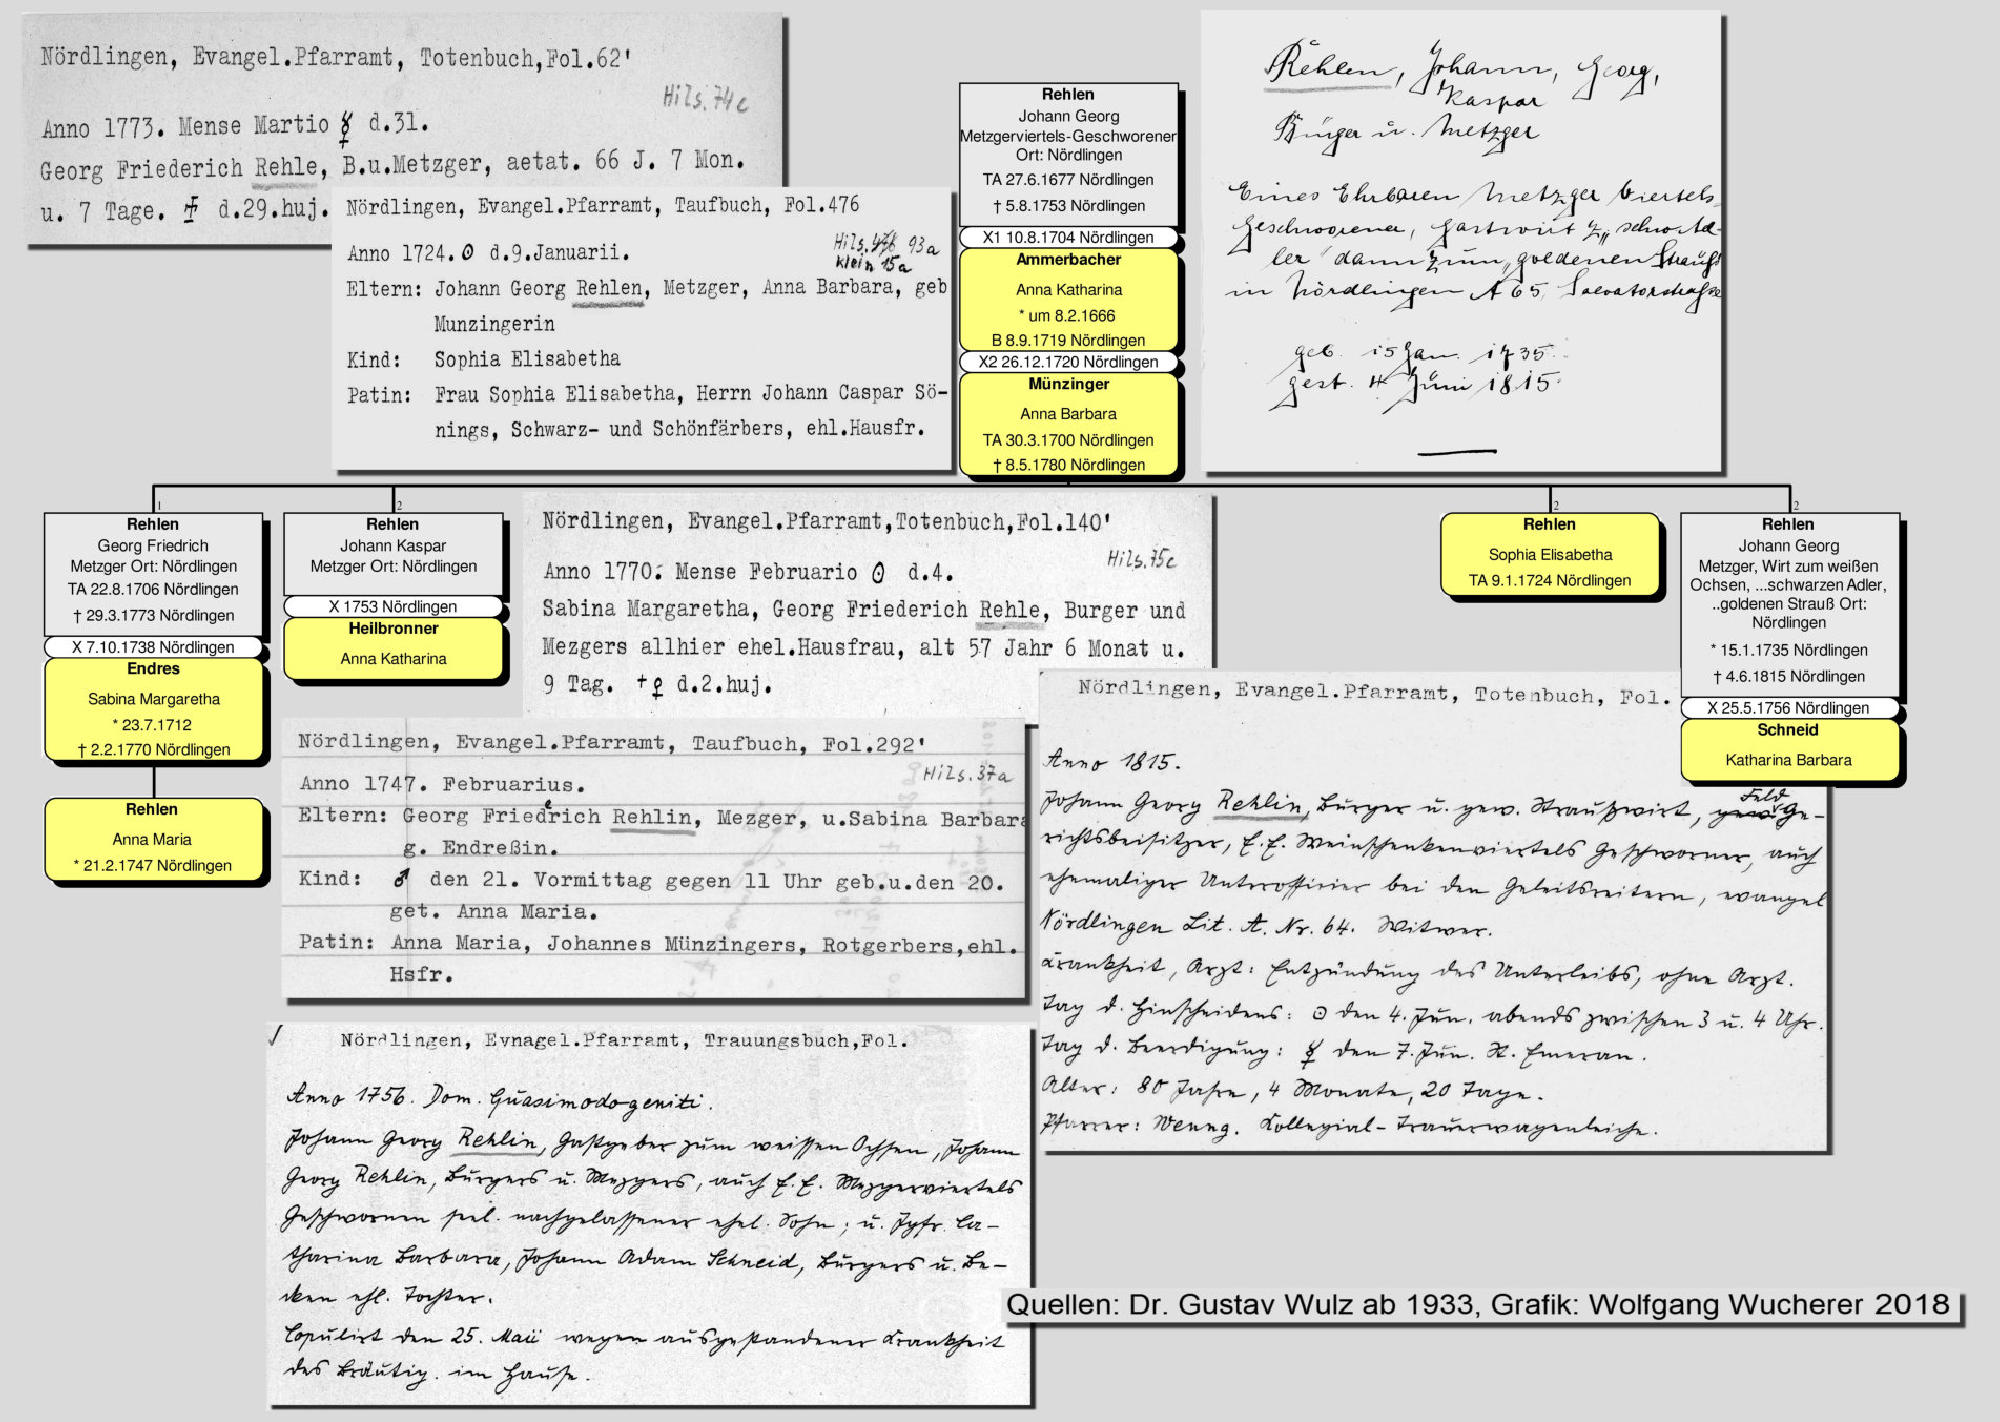 Nördlingen, Evangel.Pfarramt, Totenbuch,Fol.62'
Hils.74c
Anno 1773. Mense Martio ☿ d.31.
Georg Friederich Rehle, B.u.Metzger, aetat. 66 J. 7 Mon.
u. 7 Tage. d.29.huj.
Nördlingen, Evangel.Pfarramt, Taufbuch, Fol.476
Hils. 93a
klein 15a
Anno 1724.⊙ d.9.Januarii.
Eltern: Johann Georg Rehlen, Metzger, Anna Barbara, geb
Munzingerin
Kind: Sophia Elisabetha
Patin: Frau Sophia Elisabetha, Herrn Johann Caspar Sö-
nings, Schwarz- und Schönfärbers, ehl.Hausfr.
Rehlen
Johann Georg
Metzgerviertels-Geschworener
Ort: Nördlingen
TA 27.6.1677 Nördlingen
† 5.8.1753 Nördlingen
X1 10.8.1704 Nördlingen
Ammerbacher
Anna Katharina
* um 8.2.1666
B 8.9.1719 Nördlingen
X2 26.12.1720 Nördlingen
Münzinger
Anna Barbara
TA 30.3.1700 Nördlingen
† 8.5.1780 Nördlingen
Rehlen, Johann, Georg,
Kaspar
Bürger u. Metzger
Eines Ehrbaren Metzger Viertels
geschworener, Gastwirt z. schwarzad-
ler dann zum goldenen Strauß
in Nördlingen A 65, Salvatorstraße
geb. 15 Jan. 1735.
gest. 4 Juni 1815.
1
Rehlen
Georg Friedrich
Metzger Ort: Nördlingen
TA 22.8.1706 Nördlingen
† 29.3.1773 Nördlingen
X 7.10.1738 Nördlingen
Endres
Sabina Margaretha
* 23.7.1712
† 2.2.1770 Nördlingen
Rehlen
Anna Maria
* 21.2.1747 Nördlingen
2
Rehlen
Johann Kaspar
Metzger Ort: Nördlingen
X 1753 Nördlingen
Heilbronner
Anna Katharina
Nördlingen, Evangel.Pfarramt,Totenbuch,Fol.140'
Hils.75c
Anno 1770: Mense Februario ⊙ d.4.
Sabina Margaretha, Georg Friederich Rehle, Burger und
Mezgers allhier ehel.Hausfrau, alt 57 Jahr 6 Monat u.
9 Tag. +♀ d.2.huj.
2
Rehlen
Sophia Elisabetha
TA 9.1.1724 Nördlingen
2
Rehlen
Johann Georg
Metzger, Wirt zum weißen
Ochsen, ...schwarzen Adler,
..goldenen Strauß Ort:
Nördlingen
* 15.1.1735 Nördlingen
† 4.6.1815 Nördlingen
X 25.5.1756 Nördlingen
Schneid
Katharina Barbara
Nördlingen, Evangel.Pfarramt, Taufbuch, Fol.292'
Hils.37a
Anno 1747. Februarius.
Eltern: Georg Friederich Rehlin, Mezger, u.Sabina Barbara
g. Endreßin.
Kind: ♂ den 21. Vormittag gegen 11 Uhr geb.u.den 20.
get. Anna Maria.
Patin: Anna Maria, Johannes Münzingers, Rotgerbers,ehl.
Hsfr.
Nördlingen, Evangel.Pfarramt, Totenbuch, Fol.
Anno 1815.
Johann Georg Rehlin, Bürger u. gew. Straußwirt, Feld Ge-
richtsbeisitzer, E.E. Weinschenkenviertels Geschworner, auch
ehemaliger Unteroffizier bei den Geleitsreitern, evangel
Nördlingen Lit. A. Nr. 64. Witwer.
Krankheit, Arzt: Entzündung des Unterleibs, ohne Arzt.
Tag d. Hinscheidens: ⊙ den 4. Jun. abends zwischen 3 u. 4 Uhr.
Tag d. Beerdigung: ☿ den 7. Jun. St. Emeran.
Alter: 80 Jahre, 4 Monate, 20 Tage.
Pfarrer: Wenng. Kollegial-Trauerwagenleiche.
Nördlingen, Evnagel.Pfarramt, Trauungsbuch,Fol.
Anno 1756. Dom. Quasimodogeniti.
Johann Georg Rehlin, Gastgeber zum weissen Ochsen, Johann
Georg Rehlin, Bürgers u. Mezgers, auch E.E. Mezgerviertels
Geschwornen sel. nachgelassener ehel. Sohn; u. Jgfr. Ca-
tharina Barbara, Johann Adam Schneid, Bürgers u. Be-
cken ehl. Tochter.
Copulirt den 25. Maii wegen ausgestandener Krankheit
des Bräutig. im Hause.
Quellen: Dr. Gustav Wulz ab 1933, Grafik: Wolfgang Wucherer 2018